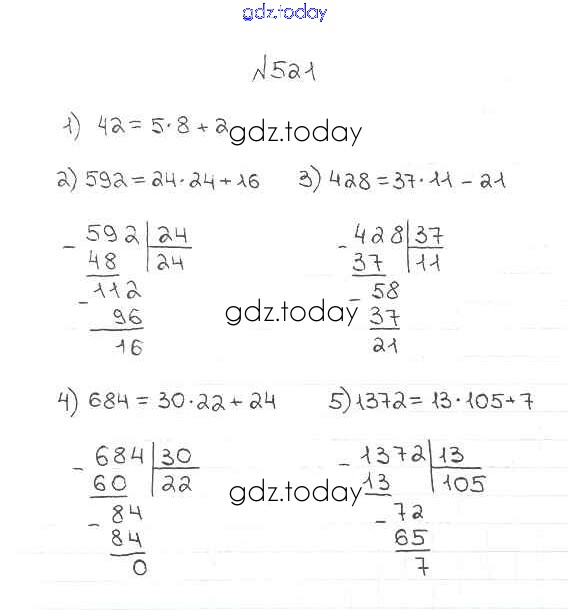 gdz.today
№521
1) 42 = 5·8 + 2
gdz.today
2) 592 = 24·24 + 16 3) 428 = 37·11 - 21
- 592 | 24
48 | 24
- 112
96
16
- 428 | 37
37 | 11
- 58
37
21
gdz.today
4) 684 = 30·22 + 24 5) 1372 = 13·105 + 7
- 684 | 30
60 | 22
- 84
84
0
- 1372 | 13
13 | 105
- 72
65
7
gdz.today